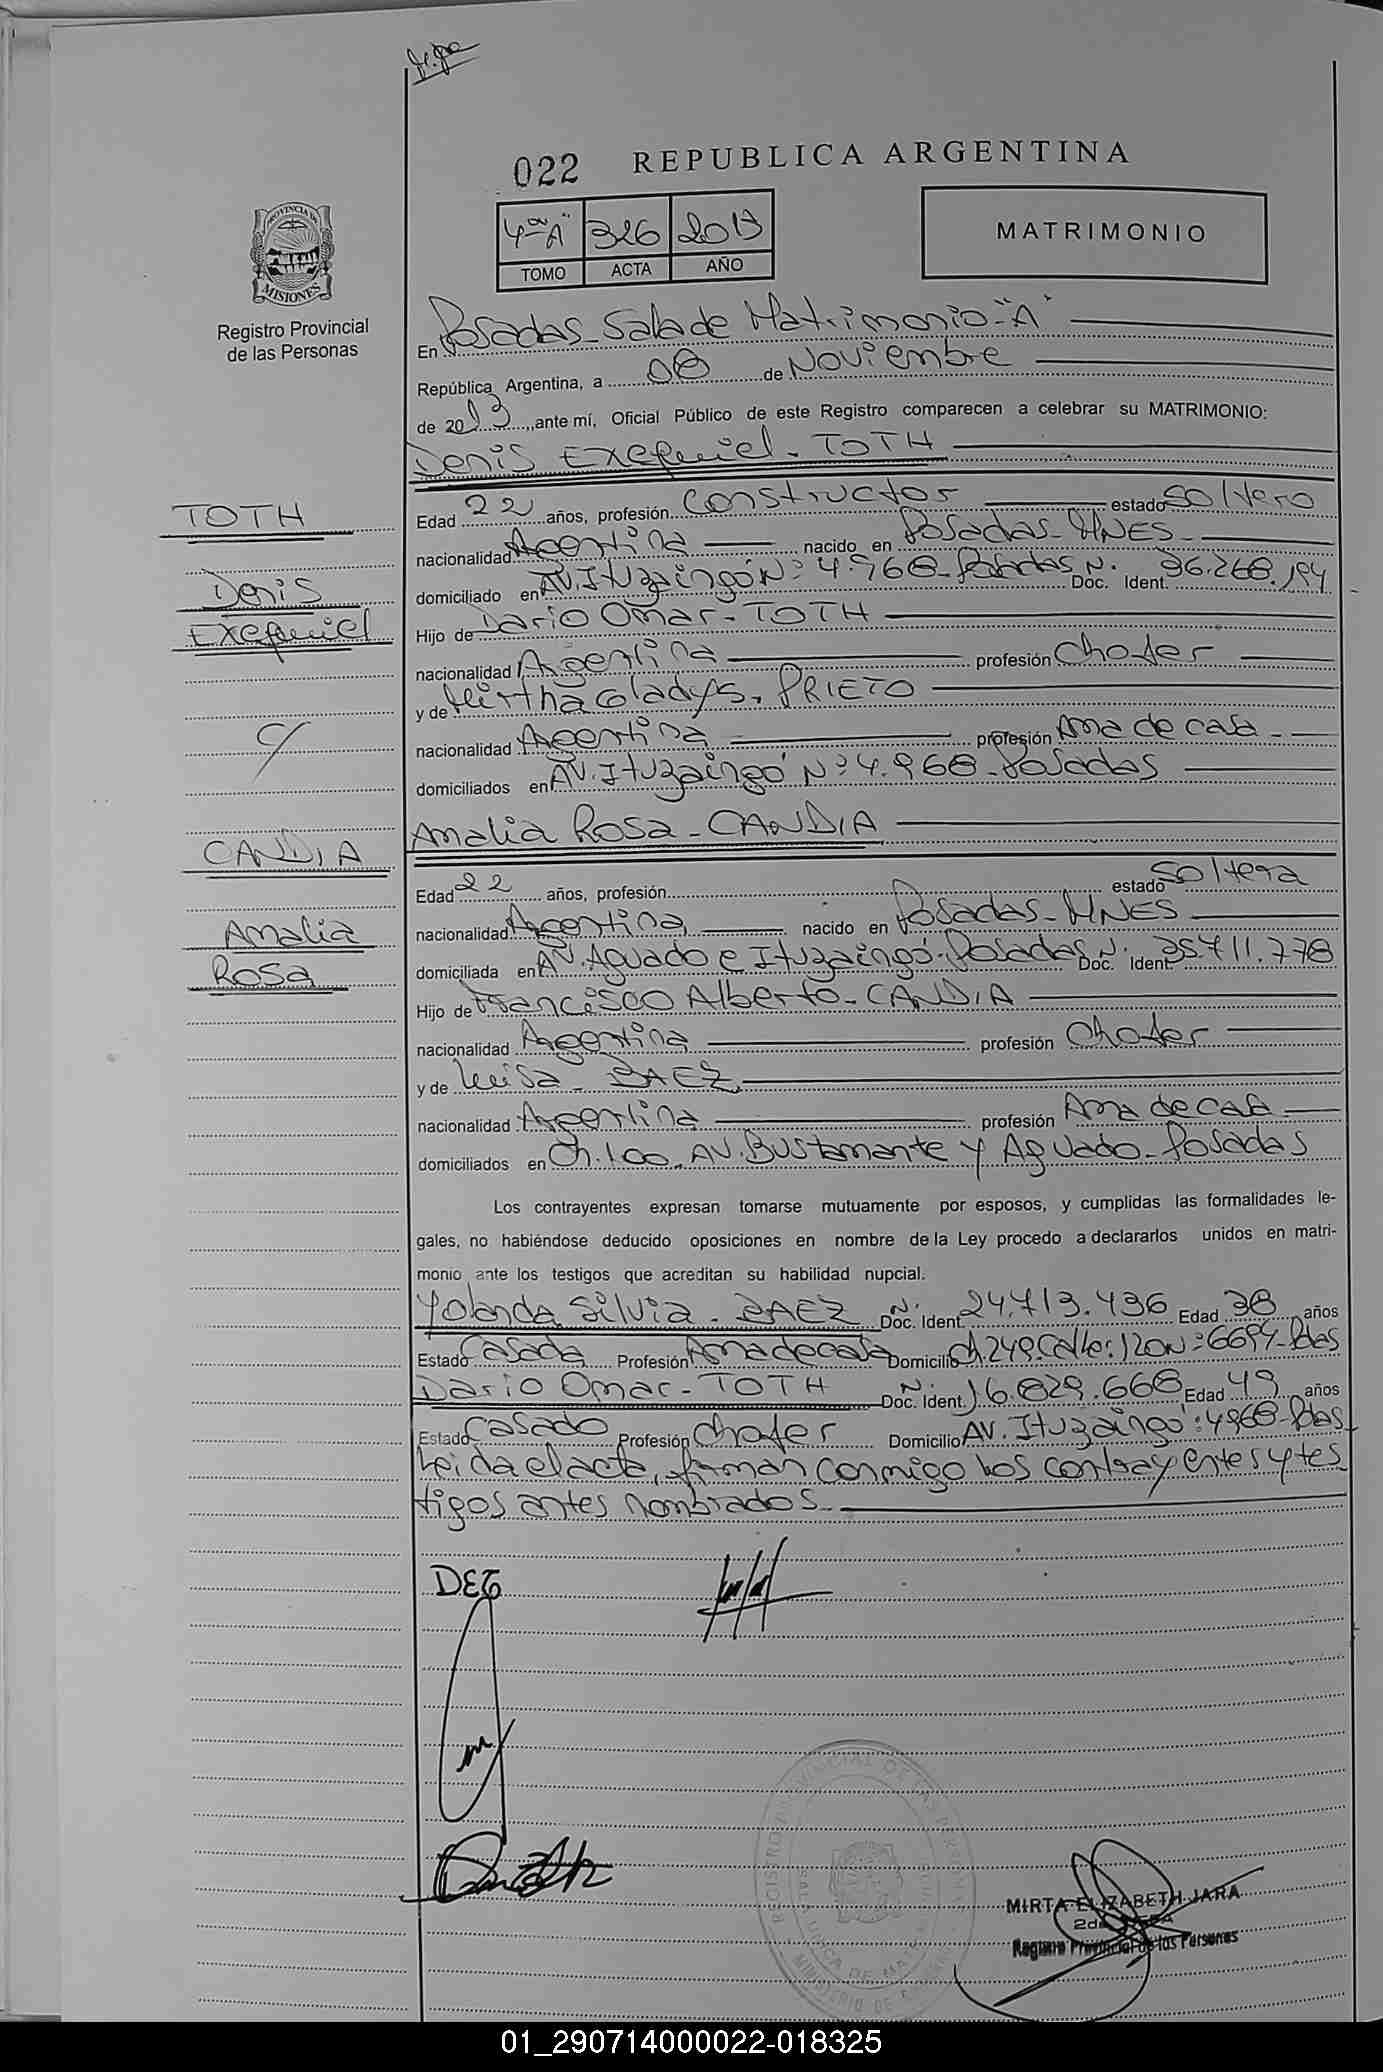 022 REPUBLICA ARGENTINA
4º "A" 326 2013
TOMO ACTA AÑO
MATRIMONIO
PROVINCIA DE MISIONES
Registro Provincial
de las Personas
En Posadas - Sala de Matrimonio - "A"
República Argentina, a 08 de Noviembre
de 2013, ante mí, Oficial Público de este Registro comparecen a celebrar su MATRIMONIO:
Denis Exequiel - TOTH
TOTH
Denis
Exequiel
c/
CANDIA
Amalia
Rosa
Edad 22 años, profesión Constructor estado Soltero
nacionalidad Argentina nacido en Posadas - MNES -
domiciliado en AV. Ituzaingó Nº: 4.968 - Posadas N. Doc. Ident. 36.268.194
Hijo de Dario Omar - TOTH
nacionalidad Argentina profesión Chofer
y de Mirtha Gladys, PRIETO
nacionalidad Argentina profesión Ama de casa -
domiciliados en AV. Ituzaingó Nº: 4.968 - Posadas
Amalia Rosa - CANDIA
Edad 22 años, profesión estado Soltera
nacionalidad Argentina nacido en Posadas - MNES
domiciliada en AV. Aguado e Ituzaingó - Posadas N. Doc. Ident. 35.711.778
Hijo de Francisco Alberto - CANDIA
nacionalidad Argentina profesión Chofer
y de Luisa - BAEZ
nacionalidad Argentina profesión Ama de casa
domiciliados en Ch. 100 - AV. Bustamante y Aguado - Posadas
Los contrayentes expresan tomarse mutuamente por esposos, y cumplidas las formalidades le-
gales, no habiéndose deducido oposiciones en nombre de la Ley procedo a declararlos unidos en matri-
monio ante los testigos que acreditan su habilidad nupcial.
Yolanda Silvia - BAEZ N. Doc. Ident. 24.713.436 Edad 38 años
Estado Casada Profesión Ama de casa Domicilio Ch. 249 Calle: 120 Nº: 6694 - Pdas
Dario Omar - TOTH N. Doc. Ident. 16.829.668 Edad 49 años
Estado Casado Profesión Chofer Domicilio AV. Ituzaingó: 4968 - Pdas
Leida el acta, firman conmigo los contrayentes y tes
tigos antes nombrados -
DET
MIRTA ELIZABETH JARA
Registro Provincial de las Personas
01_290714000022-018325